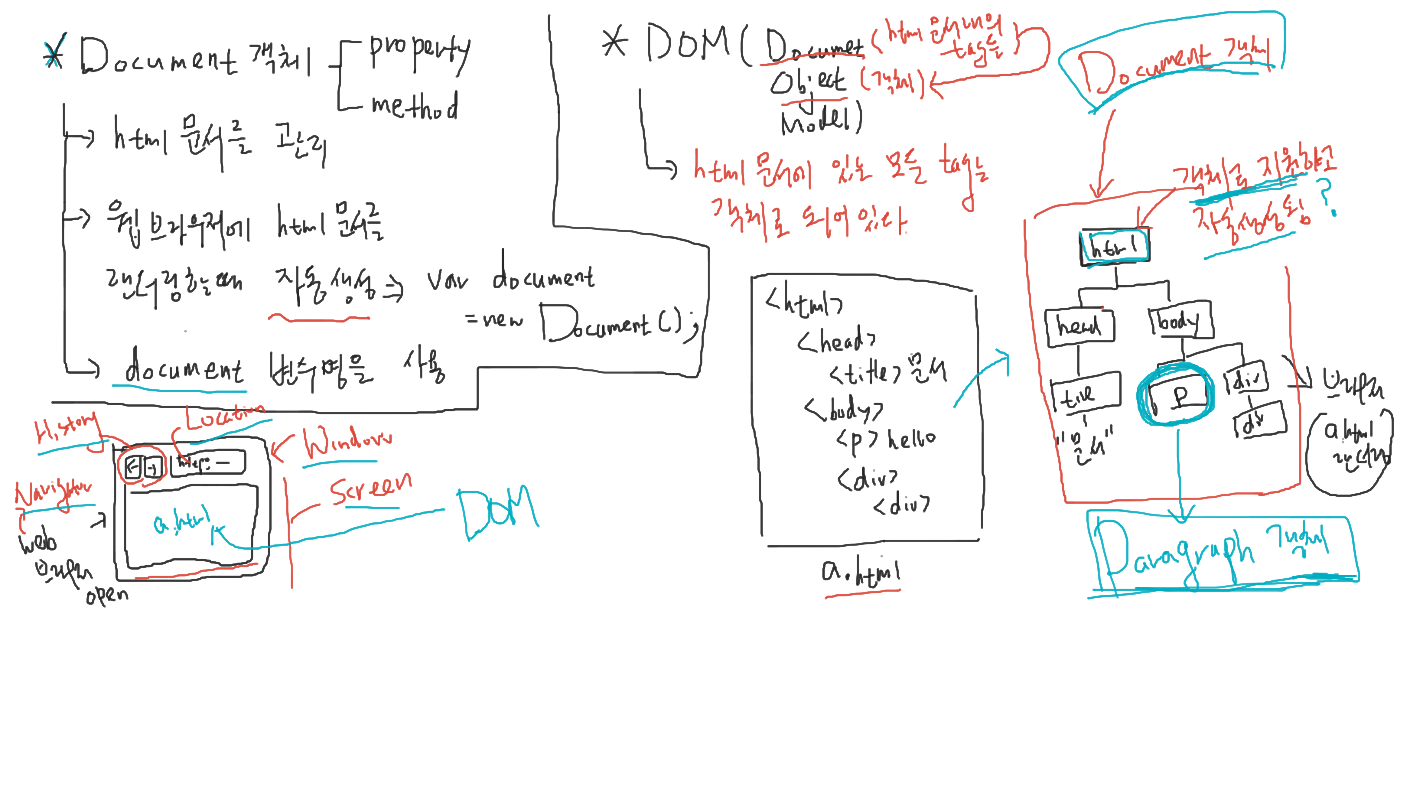 * Document 객체
property
method
html 문서를 관리
웹 브라우저에 html 문서를
랜더링할때 자동생성 => var document
= new Document();
document 변수명을 사용
History
Location
Window
Navigator
Screen
<- ->
http: —
a.html
DOM
web
브라우저
open
* DOM( Documet <html 문서내의
tag들>
Object (객체)
Model)
html 문서에 있는 모든 tag는
객체로 되어있다.
<html>
<head>
<title> 문서
<body>
<p> hello
<div>
<div>
a.html
Document 객체
객체를 지원하고
자동생성됨 ?
html
head body
title p div
"문서" div
브라우저
a.html
랜더링
Paragraph 객체